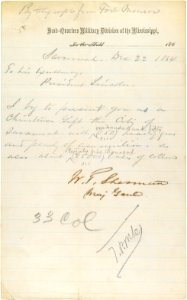 By telegraph from Ft Monroe
Head-Quarters Military Division of the Mississippi,
In the Field, 186
Savannah, Dec 22, 1864
To his Excellency
President Lincoln
I beg to present you as a
Christmas Gift the City of
Savannah with
and plenty of ammunition as
also about bales of cotton
W. T. Sherman
Maj Genl